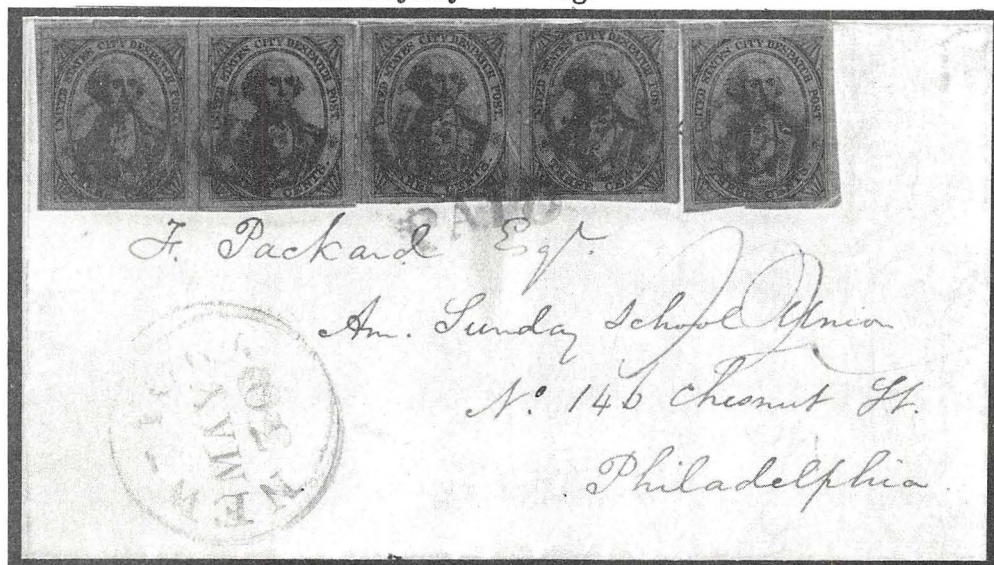 UNITED STATES CITY DESPATCH POST. THREE CENTS.
UNITED STATES CITY DESPATCH POST. CENTS.
UNITED STATES CITY DESPATCH POST. THREE CENTS.
UNITED STATES CITY DESPATCH POST. THREE CENTS.
UNITED STATES CITY DESPATCH POST. THREE CENTS.
PAID
F. Packard Esqr.
Am. Sunday School Union
No. 146 Chesnut St.
Philadelphia
NEW
MAY